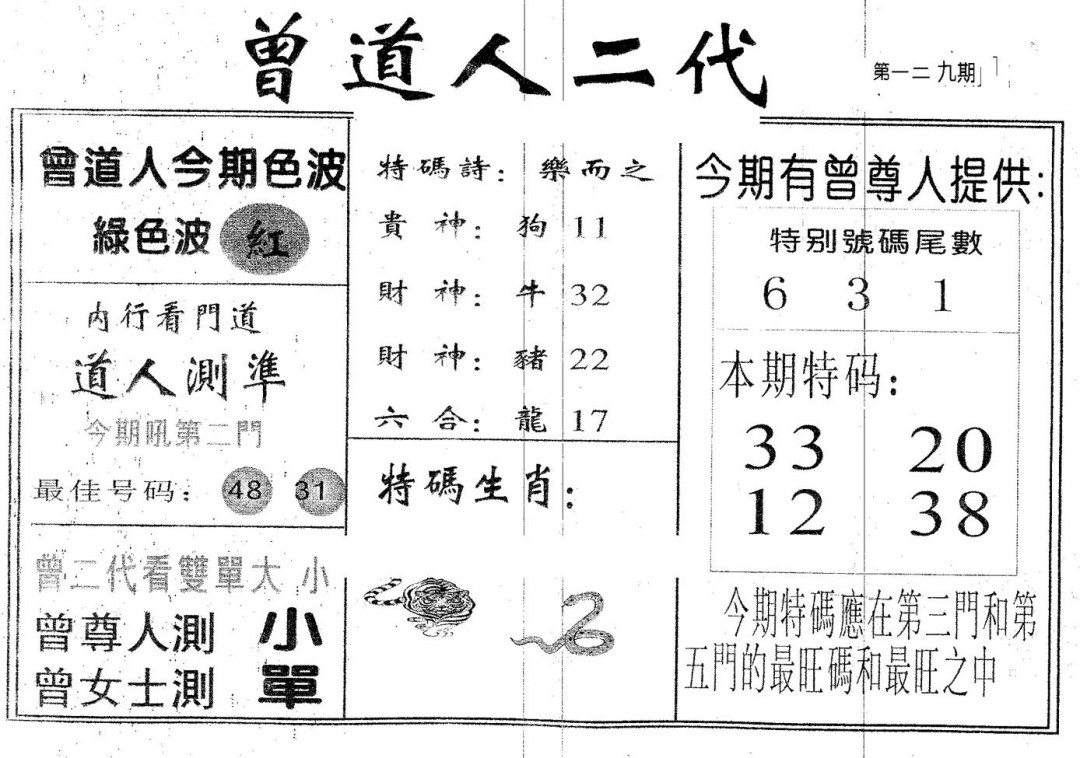 曾道人二代
第一二九期
曾道人今期色波
綠色波 紅
内行看門道
道人測準
今期吼第二門
最佳号码： 48 31
曾二代看雙單大 小
曾尊人測 小
曾女士測 單
特碼詩：樂而之
貴神：狗 11
財神：牛 32
財神：豬 22
六合：龍 17
特碼生肖：
今期有曾尊人提供：
特别號碼尾數
6 3 1
本期特码：
33 20
12 38
今期特碼應在第三門和第
五門的最旺碼和最旺之中